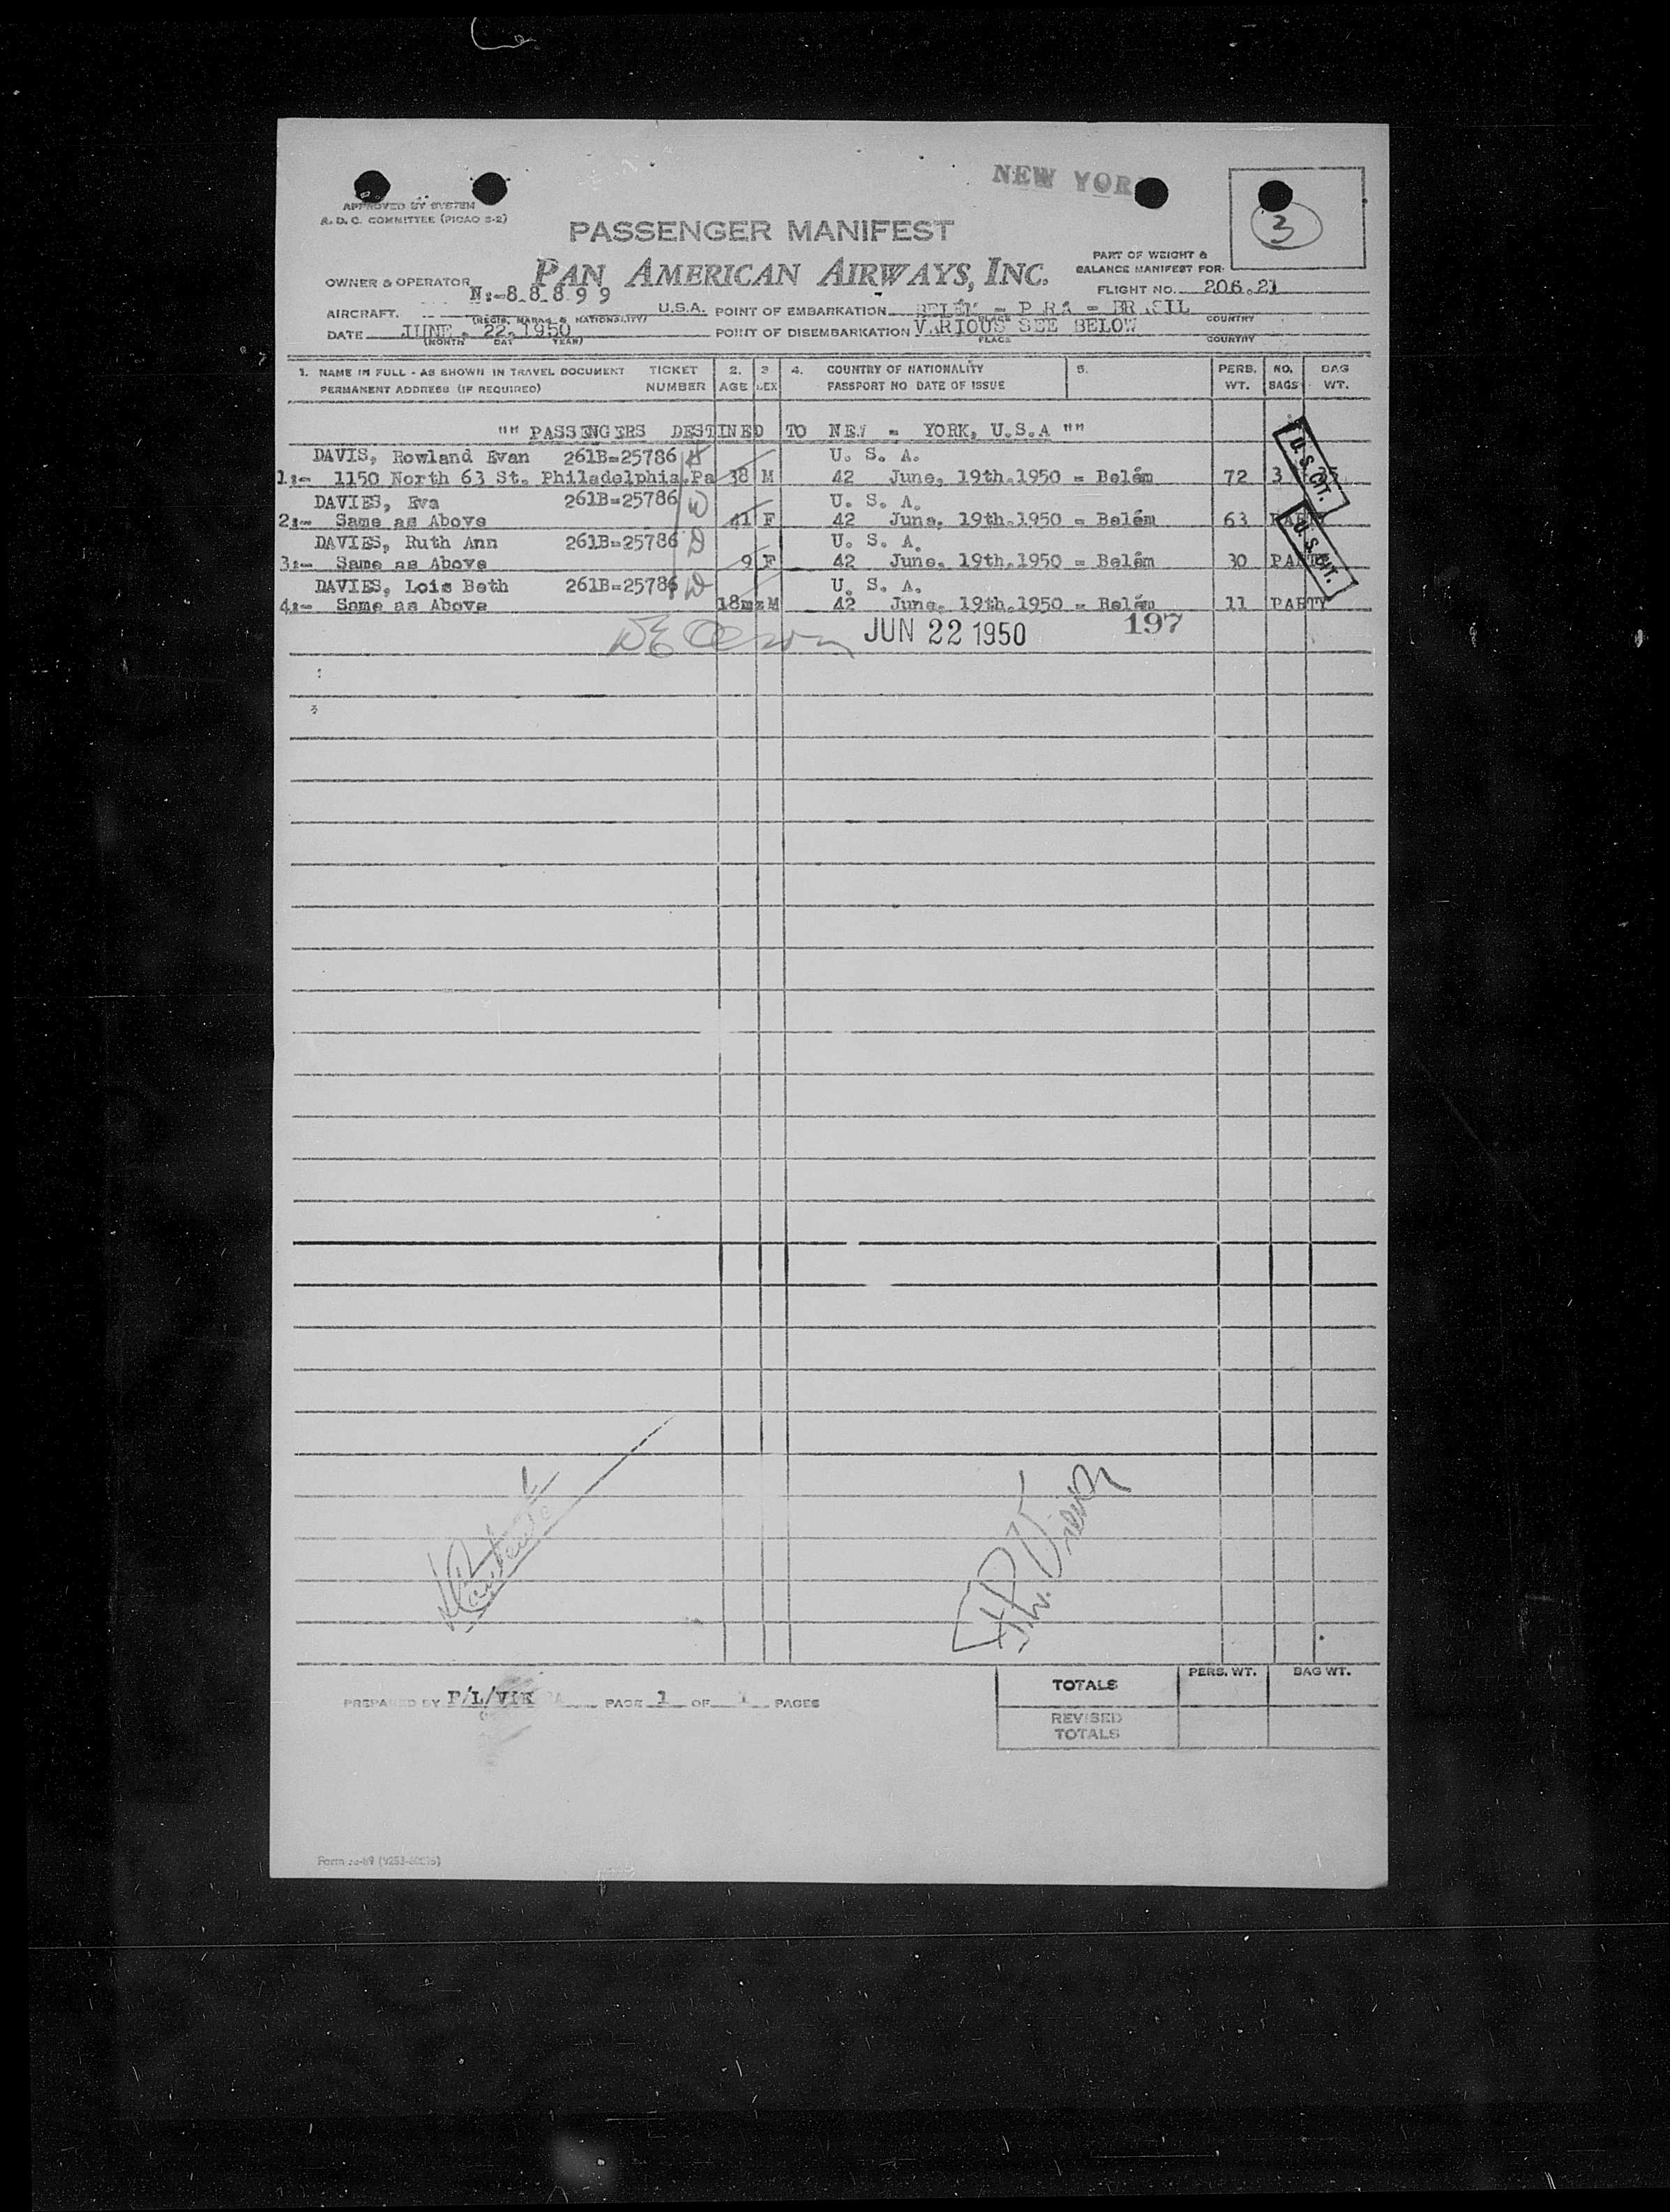 NEW YOR
APPROVED BY SYSTEM
A. D. C. COMMITTEE (PICAO S-2)
3
PASSENGER MANIFEST
PAN AMERICAN AIRWAYS, INC.
PART OF WEIGHT &
BALANCE MANIFEST FOR:
OWNER & OPERATOR
FLIGHT NO. 206.21
AIRCRAFT. N:-88899 U.S.A. POINT OF EMBARKATION BELÉM - P RÁ - BR SIL
(REGIS. MARKS & NATIONALITY) PLACE COUNTRY
DATE JUNE. 22.1950 POINT OF DISEMBARKATION VARIOUS SEE BELOW
(MONTH DAY YEAR) PLACE COUNTRY
1. NAME IN FULL - AS SHOWN IN TRAVEL DOCUMENT TICKET 2. 3 4. COUNTRY OF NATIONALITY 5. PERS. NO. BAG
PERMANENT ADDRESS (IF REQUIRED) NUMBER AGE SEX PASSPORT NO DATE OF ISSUE WT. BAGS WT.
"" PASSENGERS DESTINED TO NEW - YORK, U.S.A ""
DAVIS, Rowland Evan 261B=25786 U. S. A.
1:- 1150 North 63 St. Philadelphia.Pa 38 M 42 June, 19th.1950 = Belém 72 3
DAVIES, Eva 261B=25786 U. S. A.
2:- Same as Above 41 F 42 June, 19th.1950 = Belém 63 PARTY
DAVIES, Ruth Ann 261B=25786 U. S. A.
3:- Same as Above 9 F 42 June, 19th.1950 = Belém 30 PARTY
DAVIES, Lois Beth 261B=25786 U. S. A.
4:- Same as Above 18mz M 42 June, 19th.1950 = Belém 11 PARTY
U.S.CIT.
U.S.CIT.
JUN 22 1950 197
PREPARED BY P/L/VIE PAGE 1 OF 1 PAGES
TOTALS PERS. WT. BAG WT.
REVISED
TOTALS